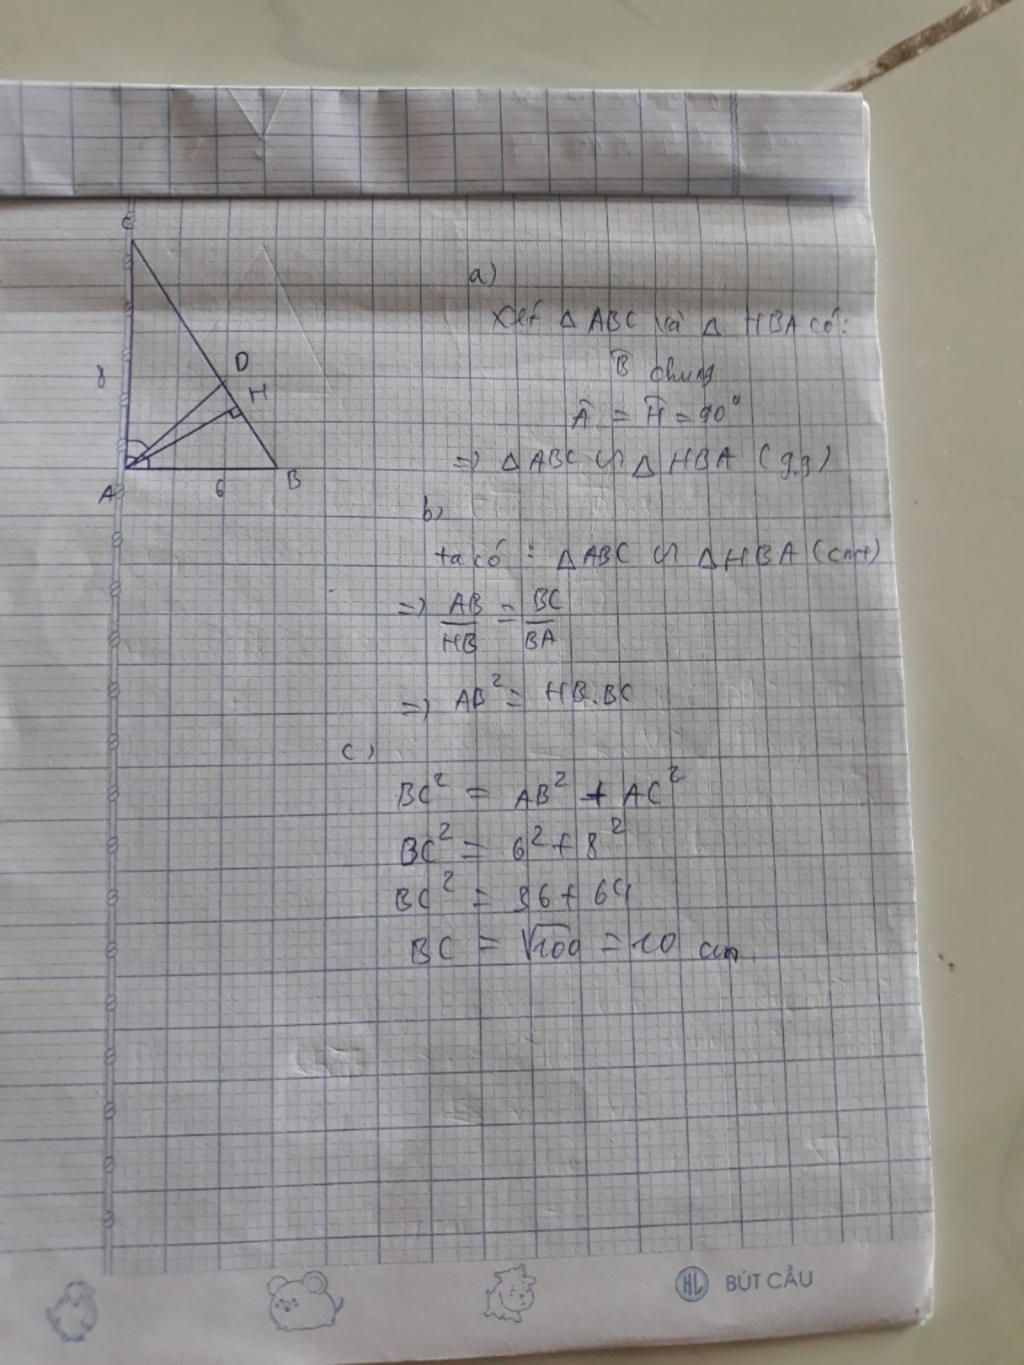 C
D
H
8
A
6
B
a)
Xét Δ ABC và Δ HBA có:
B̂ chung
Â = Ĥ = 90°
=> Δ ABC ∽ Δ HBA (g.g)
b)
ta có : Δ ABC ∽ Δ HBA (cmt)
=> AB/HB = BC/BA
=> AB² = HB.BC
c)
BC² = AB² + AC²
BC² = 6² + 8²
BC² = 36 + 64
BC = √100 = 10 cm.
HL BÚT CẦU